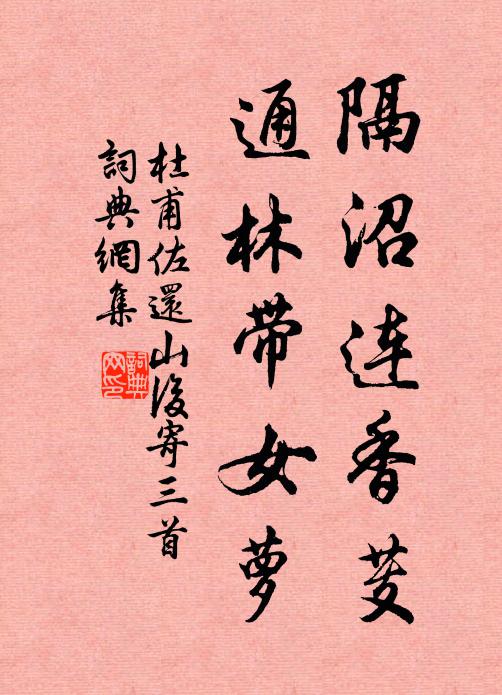 隔沼连香芰
通林带女萝
杜甫佐還山後寄三首
詞典網集
詞典网印